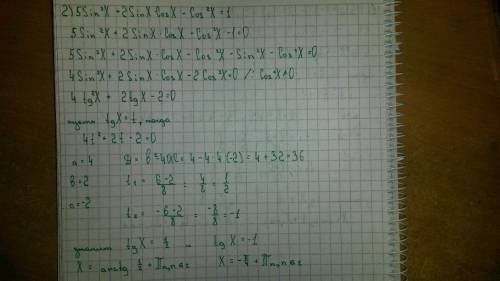 2) 5Sin²X + 2SinX CosX - Cos²X = 1
5Sin²X + 2SinX · CosX - Cos²X - 1 = 0
5Sin²X + 2SinX · CosX - Cos²X - Sin²X - Cos²X = 0
4Sin²X + 2SinX · CosX - 2Cos²X = 0 /: Cos²X ≠ 0
4tg²X + 2tgX - 2 = 0
пусть tgX = t, тогда
4t² + 2t - 2 = 0
a = 4 D = b² - 4ac = 4 - 4 · 4 · (-2) = 4 + 32 = 36
b = 2 t₁ = (6-2)/8 = 4/8 = 1/2
c = -2 t₂ = (-6-2)/8 = -8/8 = -1
значит tgX = 1/2 tgX = -1
X = arctg 1/2 + πn, n∈z X = -π/4 + πn, n∈z